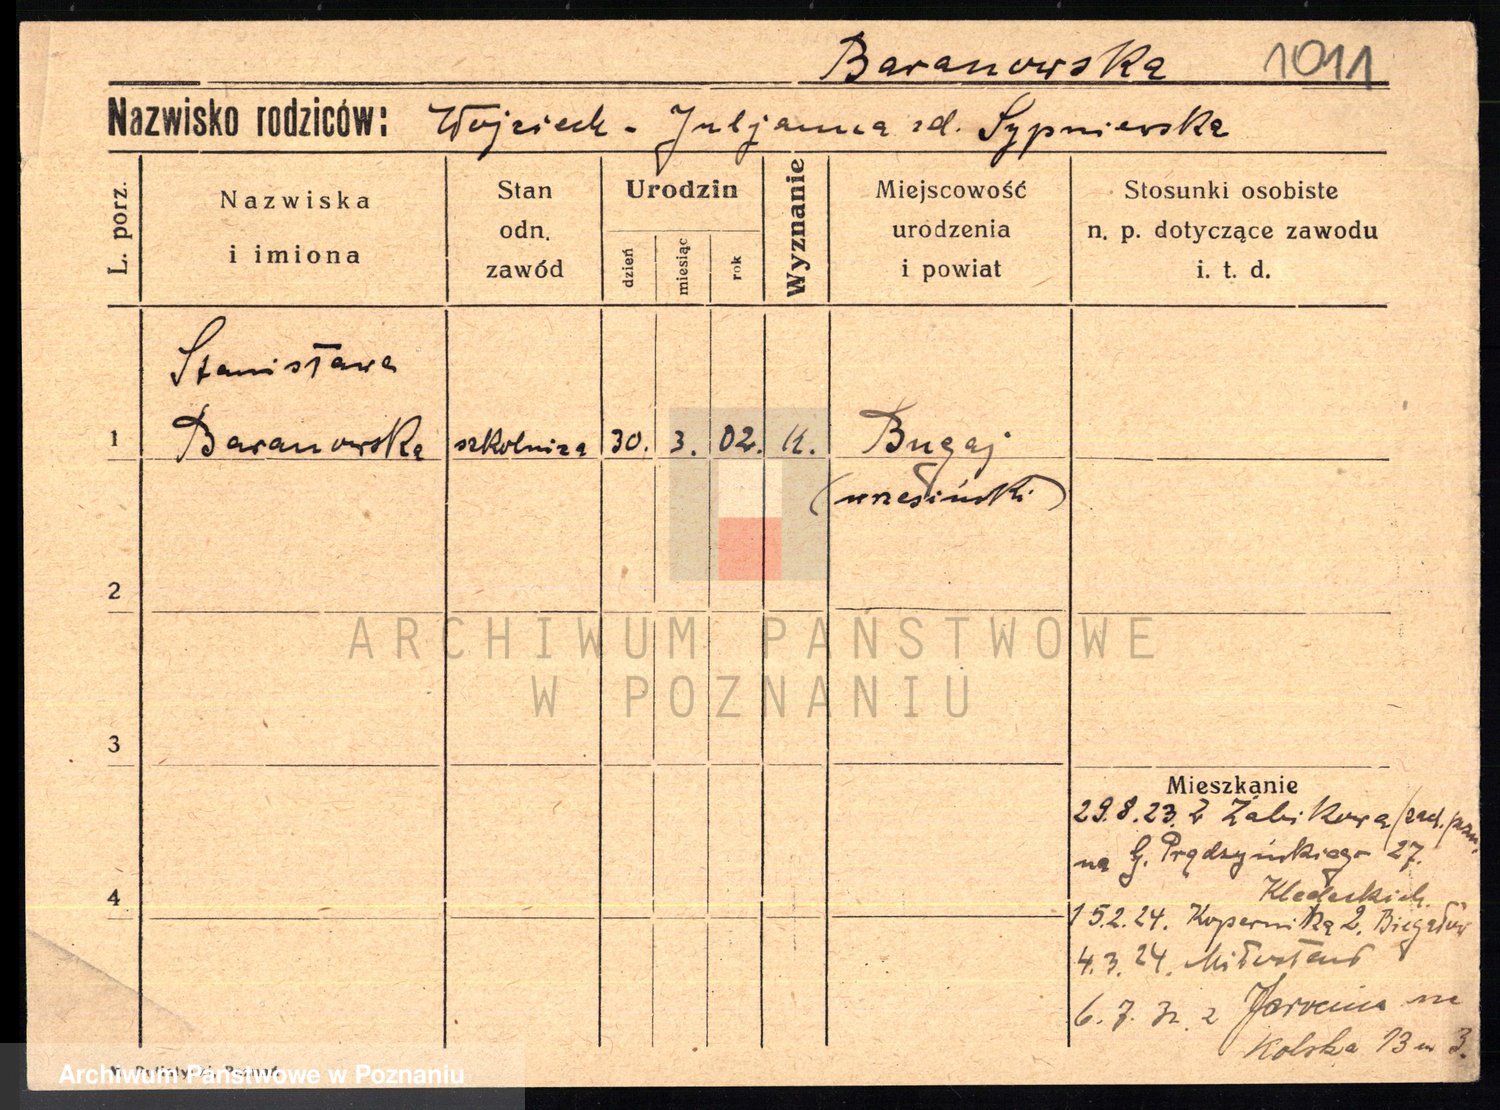 Baranowska 1011
Nazwisko rodziców: Wojciech - Juljanna zd. Sypniewska
L. porz.
Nazwiska
i imiona
Stan
odn.
zawód
Urodzin
dzień
miesiąc
rok
Wyznanie
Miejscowość
urodzenia
i powiat
Stosunki osobiste
n. p. dotyczące zawodu
i. t. d.
Stanisława
1 Baranowska 30. 3. 02. K. Bugaj
(wrzesiński)
2
ARCHIWUM PAŃSTWOWE
W POZNANIU
3
Mieszkanie
29.8.23. z Żabikowa /zach./pzn.
na G. Prądzyńskiego 27.
4
15.2.24. Kopernika 2.
4.3.24. Miłostaw
6.7. z Jarocina na
Kolska 13 m 3.
Archiwum Państwowe w Poznaniu